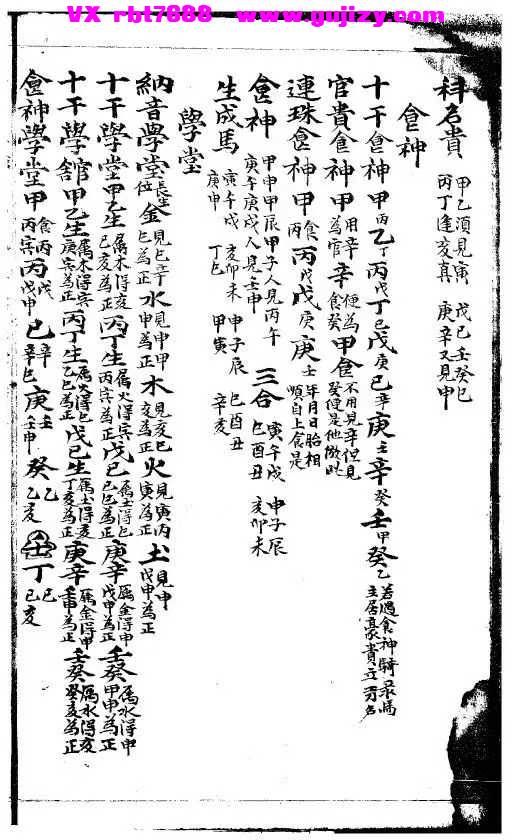 VX rbt7888 www.gujizy.com
科名貴 甲乙須見寅 戊己壬癸巳
丙丁逢亥真 庚辛又見申
食神
十干食神 甲丙 乙丁 丙戊 丁己 戊庚 己辛 庚壬 辛癸 壬甲 癸乙
官貴食神 甲用辛為官 辛食癸 便為甲食
連珠食神 甲食丙 丙戊 戊庚 庚壬 年月日胎相順自上食是
食神 甲申甲辰甲子人見丙午
寅午庚戌人見壬申
三合 寅午戌 申子辰
巳酉丑 亥卯未
生成馬 寅午戌庚申 亥卯未丁巳 申子辰甲寅 巳酉丑辛亥
學堂
納音學堂 長生位 金見巳辛巳為正 水見申甲申為正 木見亥己亥為正 火見寅丙寅為正 土見申戊申為正
十干學堂 甲乙生屬木得亥己亥為正 丙丁生屬火得寅丙寅為正 戊己 庚辛 壬癸屬水得申甲申為正
十干學館 甲乙生屬木得寅庚寅為正 丙丁生屬火得巳乙巳為正 戊己生屬土得亥丁亥為正 庚辛屬金得申壬申為正 壬癸屬水得亥癸亥為正
食神學堂 甲食丙丙寅 丙戊戊申 己辛辛巳 庚壬壬申 癸乙乙亥 丁己己亥